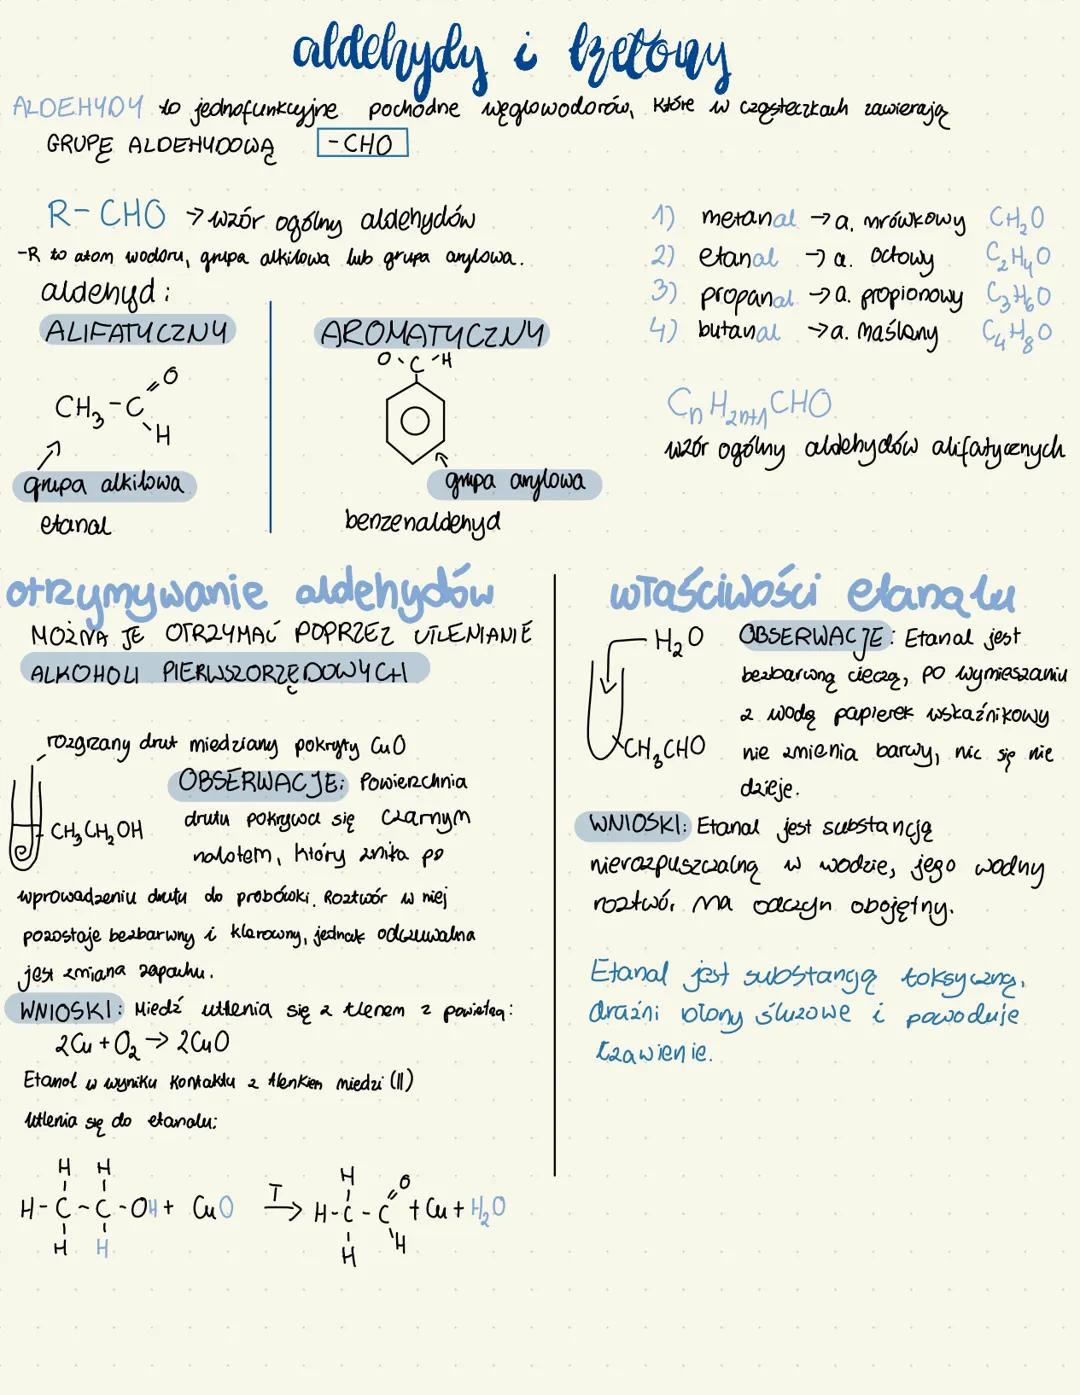 aldehydy i ketony
ALDEHYDY to jednofunkcyjne pochodne węglowodorów, które w cząsteczkach zawierają
GRUPĘ ALDEHYDOWĄ -CHO
R-CHO → wzór ogólny aldehydów
-R to atom wodoru, grupa alkilowa lub grupa arylowa.
aldehyd:
ALIFATYCZNY
CH₃-C
O
H
grupa alkilowa
etanal
AROMATYCZNY
O C H
grupa arylowa
benzenaldehyd
1) metanal → a. mrówkowy CH₂O
2) etanal → a. octowy C₂H₄O
3) propanal → a. propionowy C₃H₆O
4) butanal → a. masłowy C₄H₈O
CₙH₂ₙ₊₁CHO
wzór ogólny aldehydów alifatycznych
otrzymywanie aldehydów
MOŻNA JE OTRZYMAĆ POPRZEZ UTLENIANIE
ALKOHOLI PIERWSZORZĘDOWYCH
rozgrzany drut miedziany pokryty CuO
CH₃CH₂OH
OBSERWACJE: Powierzchnia
drutu pokrywa się czarnym
nalotem, który znika po
wprowadzeniu drutu do probówki. Roztwór w niej
pozostaje bezbarwny i klarowny, jednak odczuwalna
jest zmiana zapachu.
WNIOSKI: Miedź utlenia się z tlenem z powietrza:
2Cu + O₂ → 2CuO
Etanol w wyniku kontaktu z tlenkiem miedzi (II)
utlenia się do etanalu:
H H
H-C-C-OH + CuO
H H
T
→
H
H-C-C + Cu + H₂O
O
H
H
właściwości etanalu
H₂O
CH₃CHO
OBSERWACJE: Etanal jest
bezbarwną cieczą, po wymieszaniu
z wodą papierek wskaźnikowy
nie zmienia barwy, nic się nie
dzieje.
WNIOSKI: Etanal jest substancją
nierozpuszczalną w wodzie, jego wodny
roztwór ma odczyn obojętny.
Etanal jest substancją toksyczną,
drażni błony śluzowe i powoduje
łzawienie.